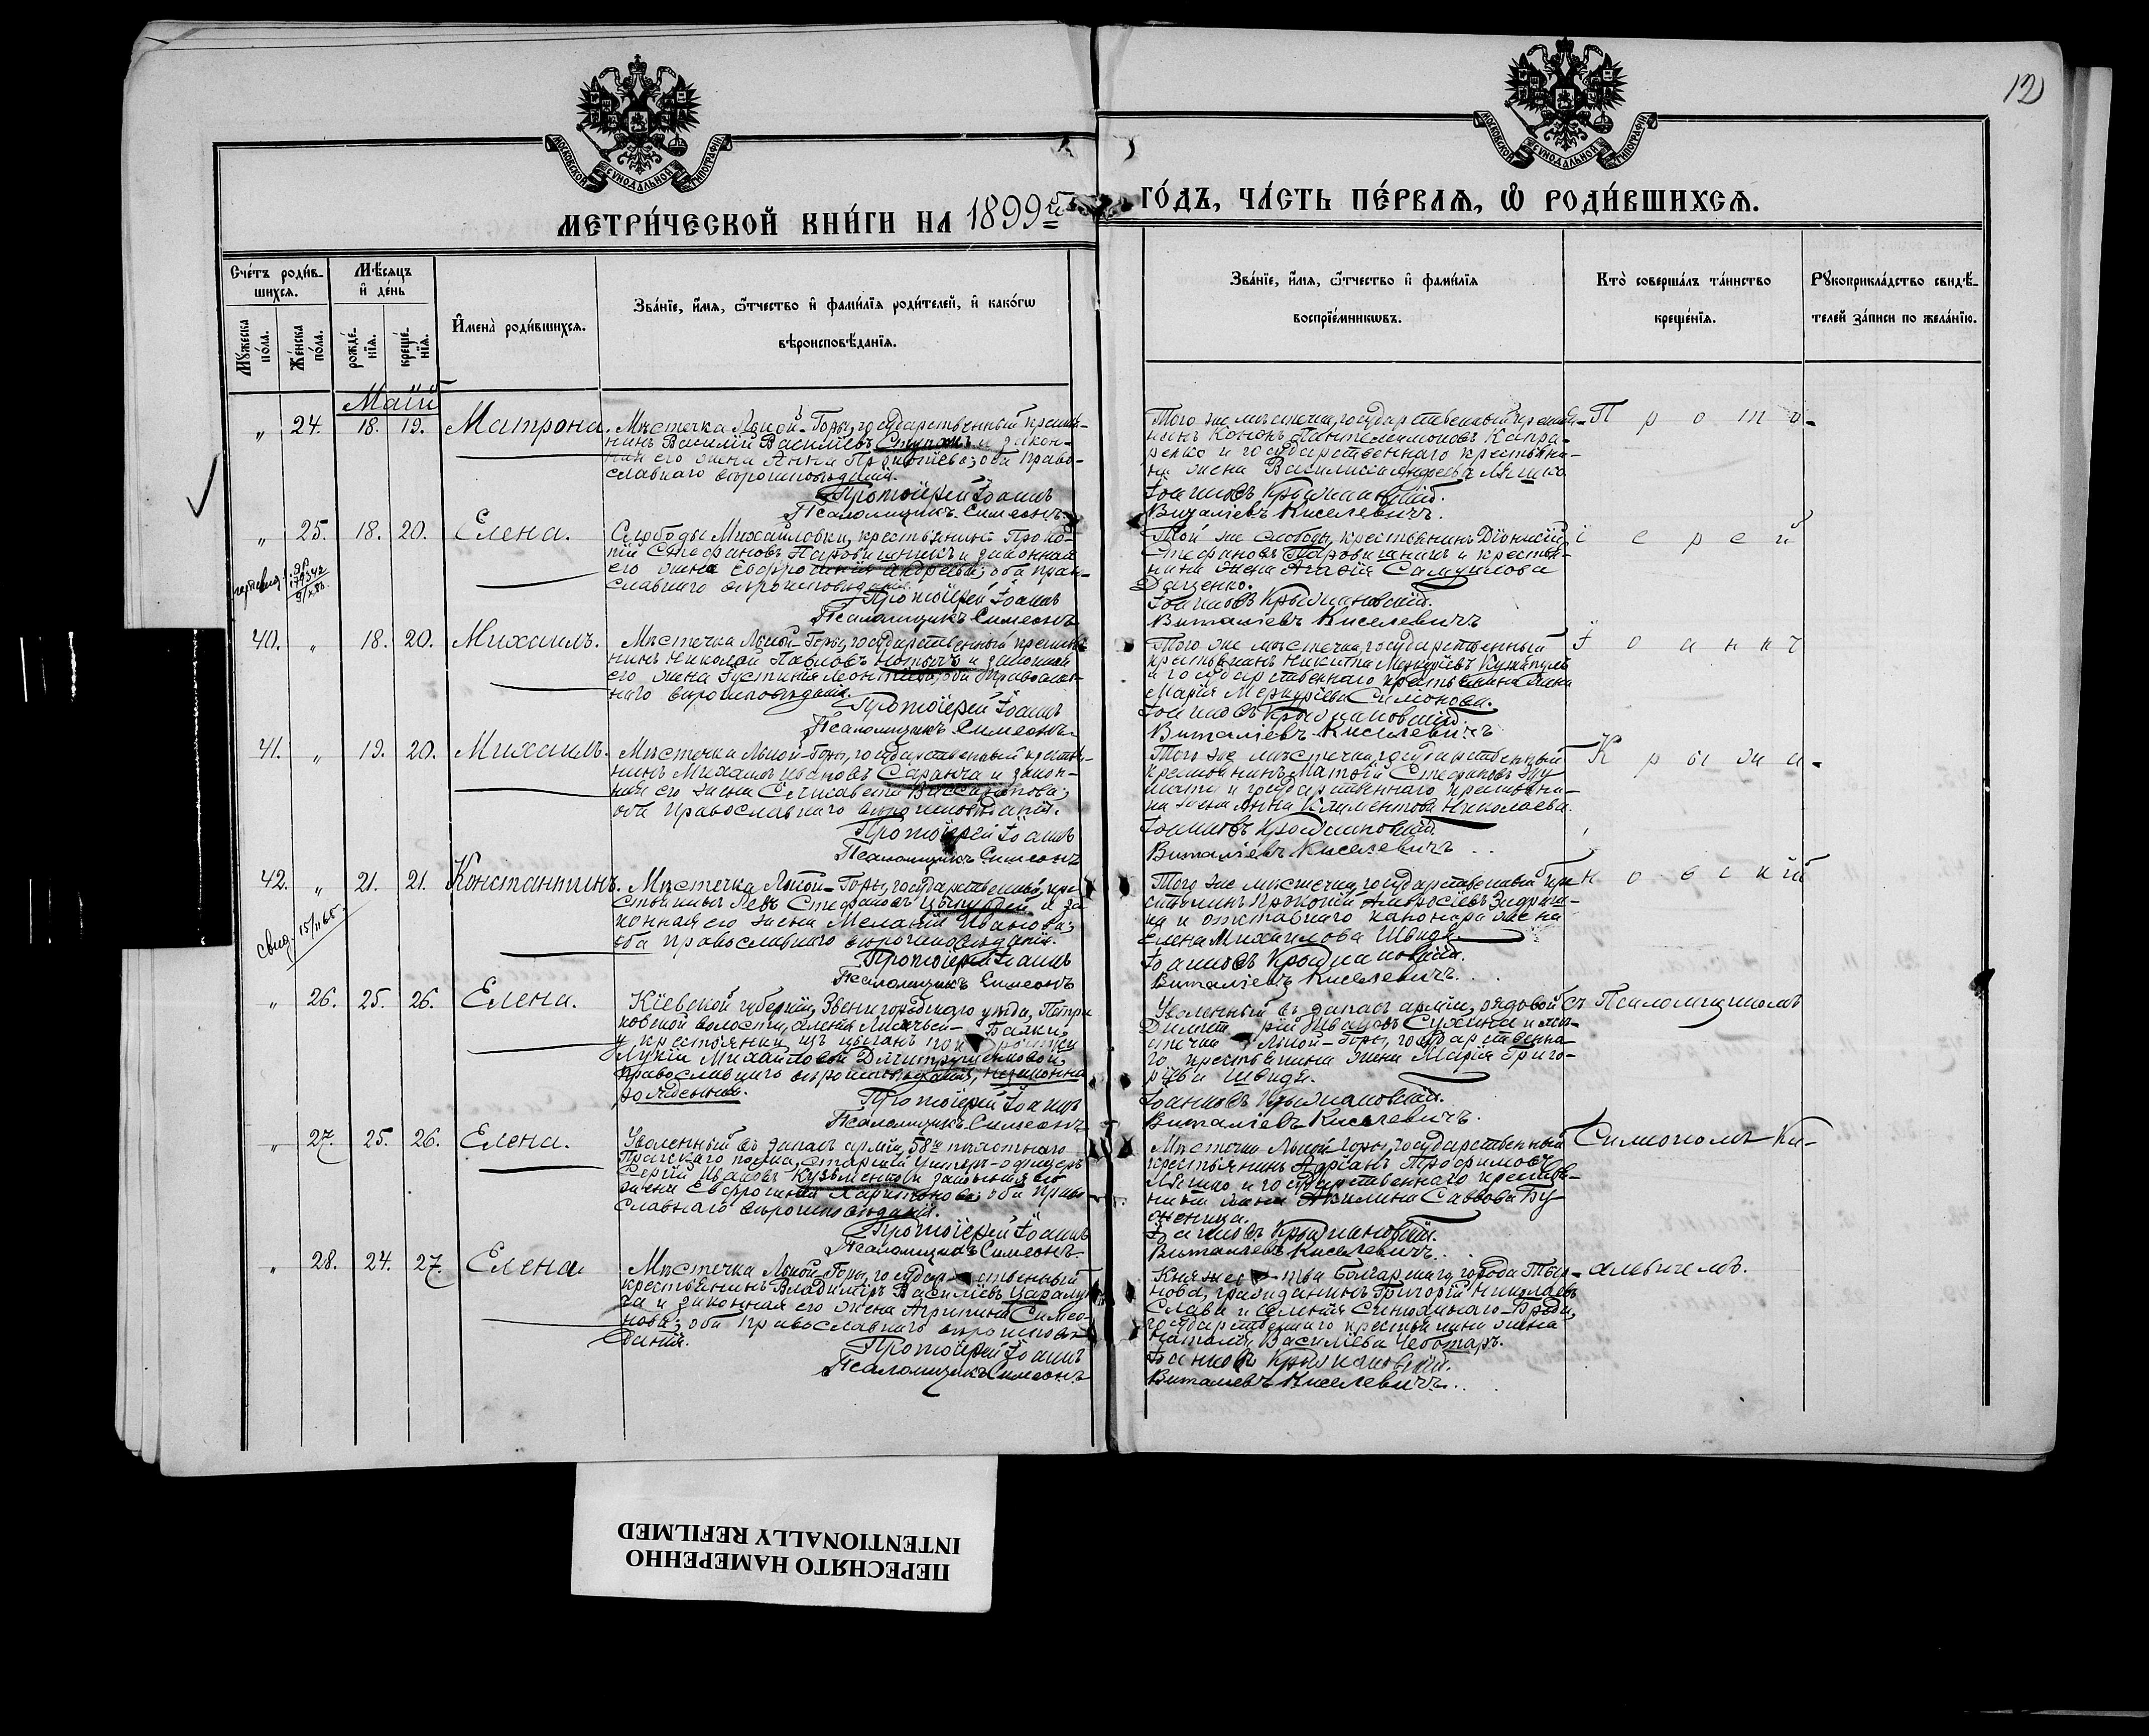 12
МОСКОВСКОЙ СѴНОДАЛЬНОЙ ТИПОГРАФІИ
МОСКОВСКОЙ СѴНОДАЛЬНОЙ ТИПОГРАФІИ
МЕТРИ́ЧЕСКОЙ КНИ́ГИ НА 1899й
ГО́ДЪ, ЧА́СТЬ ПЕ́РВАѦ, Ѽ РОДИ́ВШИХСѦ.
Сче́тъ роди́в-
шихсѧ.
Мꙋ́жеска по́ла.
Же́нска по́ла.
Мѣ́сѧцъ и҆ де́нь
рожде́-
нїѧ.
креще́-
нїѧ.
И҆мена̀ роди́вшихсѧ.
Зва́нїе, и҆́мѧ, ѻ҆́тчество и҆ фами́лїѧ роди́телей, и҆ како́гѡ
вѣроисповѣ́данїѧ.
Зва́нїе, и҆́мѧ, ѻ҆́тчество и҆ фами́лїѧ
воспрїе́мникѡвъ.
Кто̀ соверша́лъ та́инство
креще́нїѧ.
Рꙋкоприкла́дство свидѣ́-
телей за́писи по жела́нїю.
Маій
„ 24. 18. 19. Матрона.
Мѣстечка Лысой-Горы, государственный кресть-
нинъ Василій Васильевъ Ступакъ и закон-
ная его жена Анна оба право-
славнаго вѣроисповѣданія.
Протоіерей Іоаннъ
Псаломщикъ Симеонъ
Того же мѣстечка, государственный крестья-
нинъ Кононъ Пантелеимоновъ Капра-
ренко и государственнаго крестьяни-
на жена Василисса Андреева Ляшко
Іоанновъ Крыжановскій.
Виталіевъ Киселевичъ.
Прото-
„ 25. 18. 20. Елена.
Слободы Михайловки, крестьянинъ Проко-
пій Стефановъ и законная
его жена Евфросинія Андреева; оба пра-
славнаго вѣроисповѣданія.
Протоіерей Іоаннъ
Псаломщикъ Симеонъ
Той же слободы, крестьянинъ Діонисій
Стефановъ и крестья-
нина жена Агафія Самуилова
Даценко.
Іоанновъ Крыжановскій.
Виталіевъ Киселевичъ
іерей
40. „ 18. 20. Михаилъ.
Мѣстечка Лысой-Горы, государственный крестья-
нинъ Николай Павловъ и законная
его жена Іустинія Леонтіева; оба православ-
наго вѣроисповѣданія.
Протоіерей Іоаннъ
Псаломщикъ Симеонъ
Того же мѣстечка, государственный
крестьянинъ Никита Меркуріевъ
и государственнаго крестьянина жена
Марія Меркуріева Симонова.
Іоанновъ Крыжановскій.
Виталіевъ Киселевичъ
Іоаннъ
41. „ 19. 20. Михаилъ.
Мѣстечка Лысой-Горы, государственный крестья-
нинъ Михаилъ Ивановъ Саранча и закон-
ная его жена Елисавета Виссаріонова;
оба православнаго вѣроисповѣданія.
Протоіерей Іоаннъ
Псаломщикъ Симеонъ
Того же мѣстечка, государственный
крестьянинъ Матѳій Стефановъ
и государственнаго крестьяни-
на жена Анна Климентова Николаева.
Іоанновъ Крыжановскій
Виталіевъ Киселевичъ
Крыжа-
42. „ 21. 21. Константинъ.
свид. 15/II 65
Мѣстечка Лысой-Горы, государственный кре-
стьянинъ Левъ Стефановъ и за
конная его жена Меланія Иванова;
оба православнаго вѣроисповѣданія.
Протоіерей Іоаннъ
Псаломщикъ Симеонъ
Того же мѣстечка, государственный кре
стьянинъ Прокопій Амвросіевъ
и отставнаго канонира жена
Елена Михаилова Швидя.
Іоанновъ Крыжановскій.
Виталіевъ Киселевичъ.
новскій
„ 26. 25. 26. Елена.
Кіевской губерніи, Звенигородскаго уѣзда,
волости, селенія Лисичьей-Балки,
у крестьянки изъ цыганъ
Лукіи Михайловой
православнаго вѣроисповѣданія, незаконно
рожденная.
Протоіерей Іоаннъ
Псаломщикъ Симеонъ
Уволенный въ запасъ арміи, рядовой
Димитрій Ивановъ Сухина и мѣ-
стечка Лысой-Горы, государственна-
го крестьянина жена Марія Григо-
рьева Швидя.
Іоанновъ Крыжановскій.
Виталіевъ Киселевичъ.
съ Псаломщикомъ
„ 27. 25. 26. Елена.
Уволенный въ запасъ арміи, 58го пѣхотнаго
Прагскаго полка, старшій унтеръ-офицеръ
Сергій Ивановъ Кузьменко и законная его
жена Евфросинія Харитонова; оба право
славнаго вѣроисповѣданія.
Протоіерей Іоаннъ
Псаломщикъ Симеонъ
Мѣстечка Лысой Горы, государственный
крестьянинъ Адріанъ Трофимовъ
Ляшко и государственнаго крестья-
нина жена Акилина Саввова

Іоанновъ Крыжановскій.
Виталіевъ Киселевичъ.
Симеономъ Ки-
„ 28. 24. 27. Елена
Мѣстечка Лысой-Горы, государственный
крестьянинъ Владиміръ Васильевъ
и законная его жена Агрипина Симео-
нова; оба православнаго вѣроисповѣ-
данія.
Протоіерей Іоаннъ
Псаломщикъ Симеонъ
Княжества Болгарскаго, города Тыр-
нова, гражданинъ Григорій Николаевъ
Слави и селенія Синюхинаго-Брода,
государственнаго крестьянина жена
Наталія Васильева Чеботарь.
Іоанновъ Крыжановскій.
Виталіевъ Киселевичъ.
селевичемъ.
ПЕРЕСНЯТО НАМЕРЕННО
INTENTIONALLY REFILMED